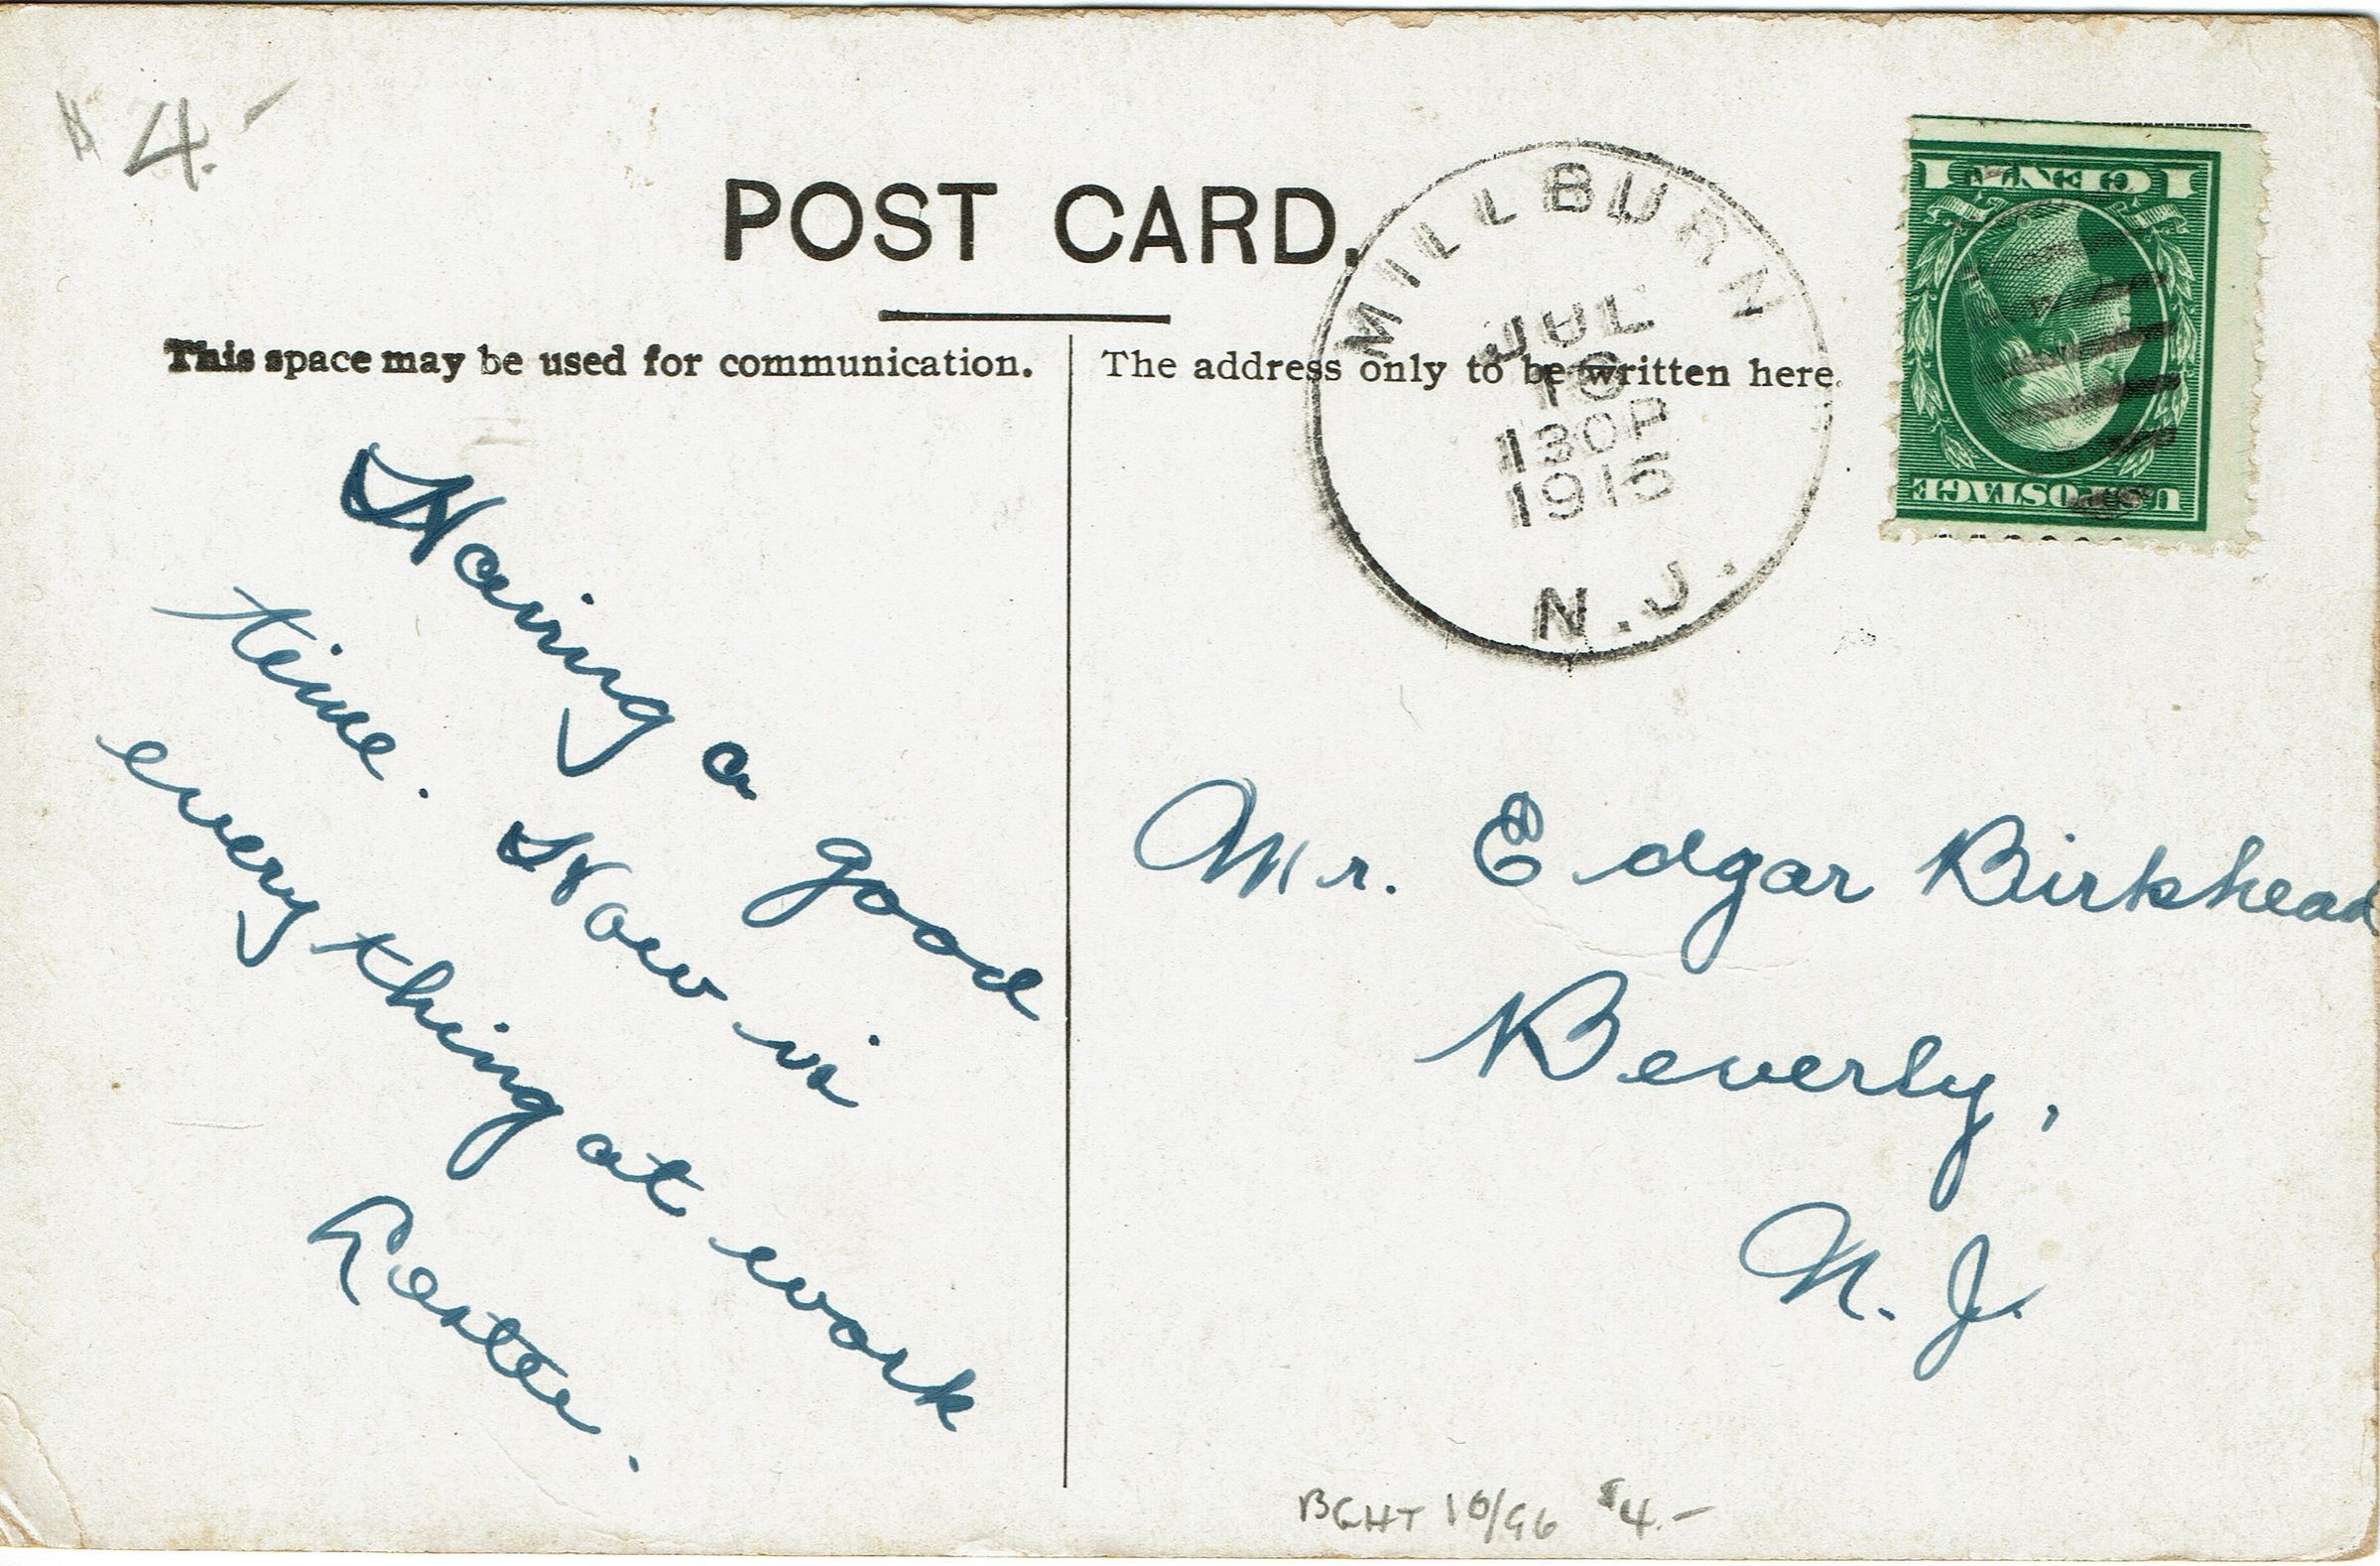 $4.-
POST CARD.
This space may be used for communication.
The address only to be written here.
MILLBURN
JUL
130P
1915
N.J.
1 CENT 1
U.S. POSTAGE
Having a good
time. How is
every thing at work
Mr. Edgar Birkhead
Beverly,
N. J.
BGHT 10/96 $4.-